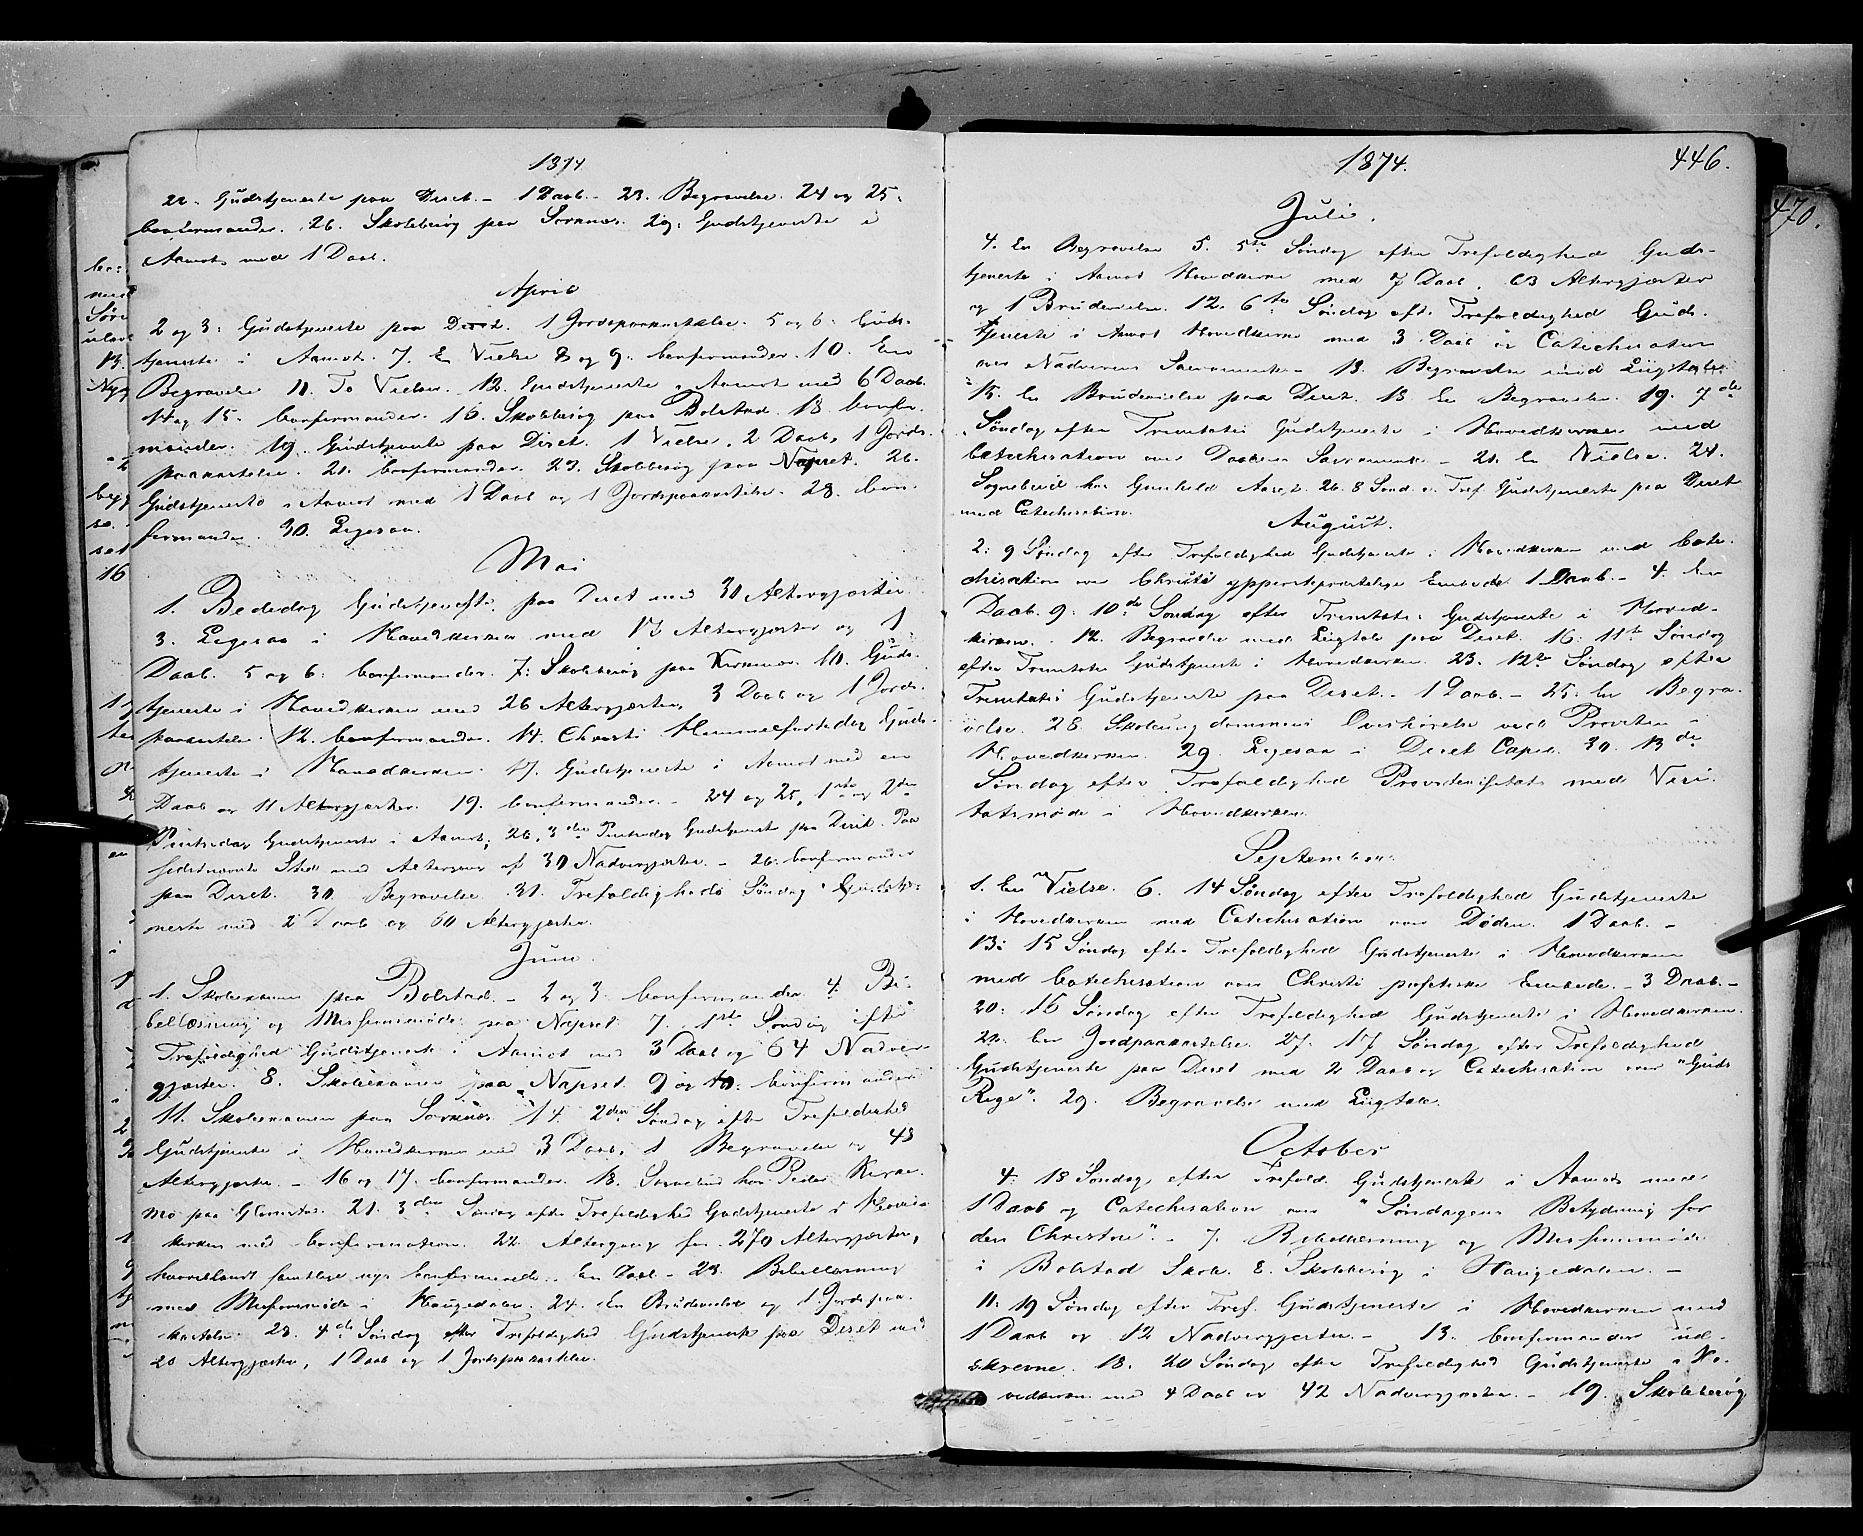 1874
22. Gudstjeneste paa Deset. – 1 Daab. – 23. Begravelse. 24 og 25.
Confirmander. 26. Skolebesøg paa Sornæs. 29. Gudstjeneste i
Aamot med 1 Daab.
April
2 og 3. Gudstjeneste paa Deset. 1 Jordspaakastelse. 5 og 6. Guds-
tjeneste i Aamot. 7. En Vielse 8 og 9. Confirmander. 10. En
Begravelse 11. To Vielser. 12. Gudstjeneste i Aamot med 6 Daab.
14 og 15. Confirmander. 16. Skolebesøg paa Bolstad. 18. Confir-
mander. 19. Gudstjeneste paa Deset. 1 Vielse, 2 Daab, 1 Jords-
paakastelse. 21. Confirmander. 23. Skolebesøg paa Næpset. 26.
Gudstjeneste i Aamot med 1 Daab og 1 Jordspaakastelse. 28. Con-
firmander. 30. Ligesaa.
Mai
1. Bededag Gudstjeneste paa Deset med 30 Altergjæster.
3. Ligesaa i Hovedkirken med 17 Altergjæster og 1
Daab. 5 og 6. Confirmander. 7. Skolebesøg paa Kirkemo. 10. Guds-
tjeneste i Hovedkirken med 26 Altergjæster, 3 Daab og 1 Jords-
paakastelse. 12. Confirmander. 14. Christi Himmelfartsdag Guds-
tjeneste i Hovedkirken. 17. Gudstjeneste i Aamot med en
Daab og 11 Altergjæster. 19. Confirmander. – 24 og 25, 1ste og 2den
Pintsedag Gudstjeneste i Aamot; 26. 3die Pintsedag Gudstjeneste paa Deset. Paa
sidstnævnte Sted med Altergang af 30 Nadvergjæster. – 26. Confirmander
paa Deset. 30. Begravelse. 31. Trefoldigheds Søndag Gudstje-
neste med 2 Daab og 60 Altergjæster.
Juni.
1. Skoleexamen paa Bolstad. – 2 og 3. Confirmander. 4. Bi-
bellæsning og Missionsmøde paa Næpset. 7. 1ste Søndag efter
Trefoldighed Gudstjeneste i Aamot med 3 Daab og 64 Nadver-
gjæster. 8. Skoleexamen paa Næpset. 9 og 10. Confirmander
11. Skoleexamen paa Sornæs. 14. 2den Søndag efter Trefoldighed
Gudstjeneste i Hovedkirken med 3 Daab, 1 Begravelse og 43
Altergjæster. – 16 og 17. Confirmander. 18. Sognebud hos Peder Kirke-
mo paa Glomstad. 21. 3die Søndag efter Trefoldighed Gudstjeneste i Hoved-
kirken med Confirmation. 22. Altergang for 270 Altergjæster,
hvoriblandt samtlige nye Confirmerede. En Daab. – 23. Bibellæsning
med Missionsmøde i Haugedalen. 24. En Brudevielse og 1 Jordspaa-
kastelse. 28. 4de Søndag efter Trefoldighed Gudstjeneste paa Deset med
20 Altergjæster, 1 Daab og 1 Jordspaakastelse.
1874. 446.
470.
Juli.
4. En Begravelse 5. 5te Søndag efter Trefoldighed Guds-
tjeneste i Aamot Hovedkirke med 7 Daab, 63 Altergjæster
og 1 Brudevielse. 12. 6te Søndag eft. Trefoldighed Guds-
tjeneste i Aamot Hovedkirke med 3 Daab og Catechisation
over Nadverens Sacramente. – 13. Begravelse med Liigtale.
15. En Brudevielse paa Deset. 18 En Begravelse. 19. 7de
Søndag efter Trinitatis Gudstjeneste i Hovedkirken med
Catechisation over Daabens Sacramente. – 21. En Vielse. 24.
Sognebud hos Gunhild Aaset. 26. 8 Sønd. e. Tref. Gudstjeneste paa Deset
med Catechisation.
August.
2. 9 Søndag efter Trefoldighed Gudstjeneste i Hovedkirken med Cate-
chisation over Christi ypperstepræstelige Embede. 1 Daab. – 4. En
Daab. 9. 10de Søndag efter Trinitatis Gudstjeneste i Hoved-
kirken. 12. Begravelse med Liigtale paa Deset. 16. 11te Søndag
efter Trinitatis Gudstjeneste i Hovedkirken. 23. 12te Søndag efter
Trinitatis Gudstjeneste paa Deset. – 1 Daab. – 25. En Begra-
velse. 28. Skoleungdommens Overhørelse ved Provsten i
Hovedkirken. 29. Ligesaa i Deset Capel. 30. 13de
Søndag efter Trefoldighed Provstevisitats med Visi-
tatsmøde i Hovedkirken.
September.
1. En Vielse. 6. 14 Søndag efter Trefoldighed Gudstjeneste
i Hovedkirken med Catechisation over Døden. 1 Daab. –
13. 15 Søndag efter Trefoldighed Gudstjeneste i Hovedkirken
med Catechisation over Christi profetiske Embede. – 3 Daab. –
20. 16 Søndag efter Trefoldighed Gudstjeneste i Hovedkirken.
22. En Jordpaakastelse. 27. 17 Søndag efter Trefoldighed
Gudstjeneste paa Deset med 2 Daab og Catechisation over "Guds
Rige". 29. Begravelse med Liigtale.
October
4. 18 Søndag efter Trefold. Gudstjeneste i Aamot med
1 Daab og Catechisation over "Søndagens Betydning for
den Christne". – 7. Bibellæsning og Missionsmøde
i Bolstad Skole. 8. Skolebesøg i Haugedalen. –
11. 19 Søndag efter Tref. Gudstjeneste i Hovedkirken med
1 Daab og 12 Nadvergjæster. – 13. Confirmander ud-
skrevne. 18. 20 Søndag efter Trefoldighed Gudstjeneste i Ho-
vedkirken med 4 Daab og 42 Nadvergjæster. – 19. Skolebesøg